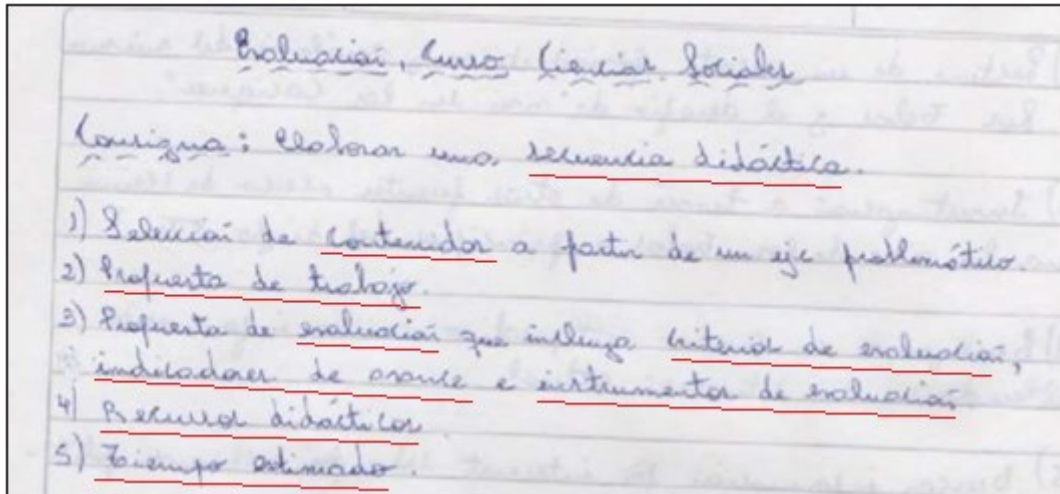 Evaluación, Curso Ciencias Sociales
Consigna: Elaborar una secuencia didáctica.
1) Selección de contenidos a partir de un eje problemático.
2) Propuesta de trabajo.
3) Propuesta de evaluación que incluya criterios de evaluación,
indicadores de avance e instrumentos de evaluación
4) Recursos didácticos
5) Tiempo estimado.